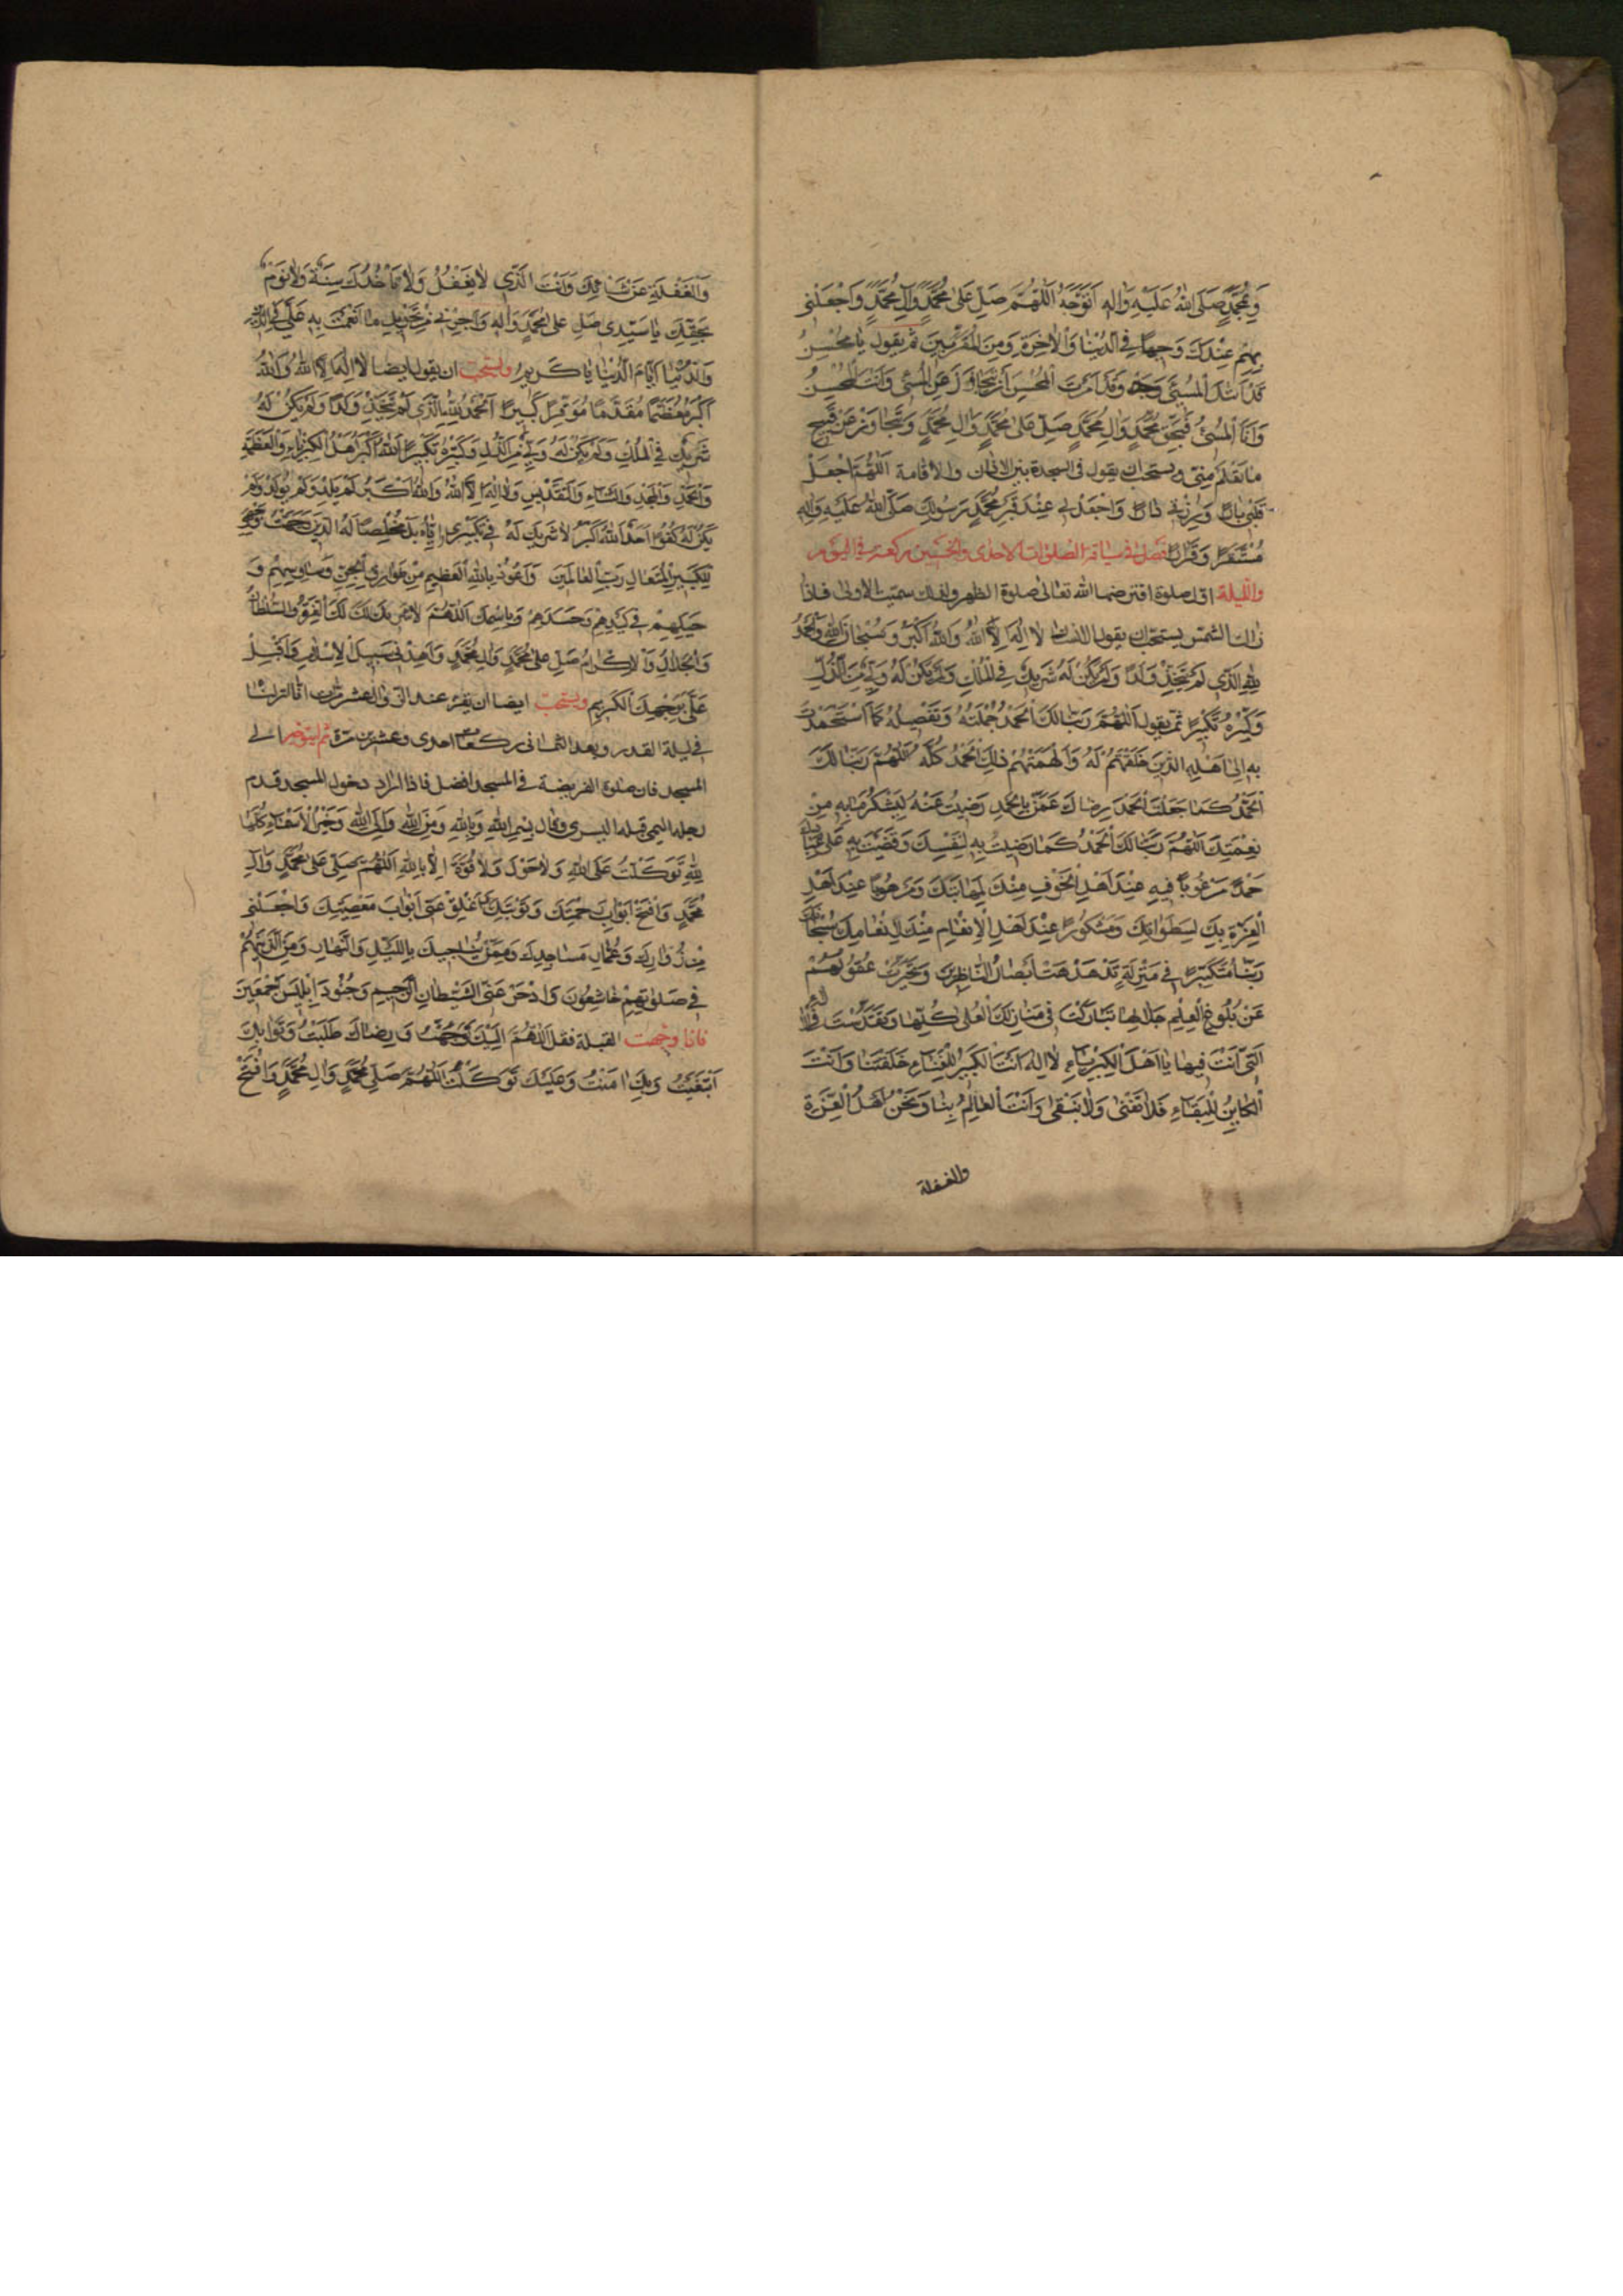 وَبِمُحَمَّدٍ صَلَّى اللهُ عَلَيْهِ وَاٰلِهِ اَتَوَجَّهُ اَللّٰهُمَّ صَلِّ عَلٰى مُحَمَّدٍ وَاٰلِ مُحَمَّدٍ وَاجْعَلْنِي
بِهِمْ عِنْدَكَ وَجِيهًا فِي الدُّنْيَا وَالْاٰخِرَةِ وَمِنَ الْمُقَرَّبِينَ ثم يقول يَا مُحْسِنُ
قَدْ اَتَاكَ الْمُسِيئُ وَقَدْ اَمَرْتَ الْمُحْسِنَ اَنْ يَتَجَاوَزَ عَنِ الْمُسِيئِ وَاَنْتَ الْمُحْسِنُ
وَاَنَا الْمُسِيئُ فَبِحَقِّ مُحَمَّدٍ وَاٰلِ مُحَمَّدٍ صَلِّ عَلٰى مُحَمَّدٍ وَاٰلِ مُحَمَّدٍ وَتَجَاوَزْ عَنْ قَبِيحِ
مَا تَعْلَمُ مِنِّي ويستحب ان يقول في السجدة بين الاذان والاقامة اَللّٰهُمَّ اجْعَلْ
قَلْبِي بَارًّا وَرِزْقِي دَارًّا وَاجْعَلْ لِي عِنْدَ قَبْرِ مُحَمَّدٍ رَسُولِكَ صَلَّى اللهُ عَلَيْهِ وَاٰلِهِ
مُسْتَقَرًّا وَقَرَارًا فصل في سياقة الصلوات الاحدى والخمسين ركعة في اليوم
والليلة اول صلوة افترضها الله تعالى صلوة الظهر ولذلك سميت الاولى فاذا
زالت الشمس يستحب ان يقول لَا اِلٰهَ اِلَّا اللهُ وَاللهُ اَكْبَرُ وَسُبْحَانَ اللهِ وَالْحَمْدُ
لِلّٰهِ الَّذِي لَمْ يَتَّخِذْ وَلَدًا وَلَمْ يَكُنْ لَهُ شَرِيكٌ فِي الْمُلْكِ وَلَمْ يَكُنْ لَهُ وَلِيٌّ مِنَ الذُّلِّ
وَكَبِّرْهُ تَكْبِيرًا ثم يقول اَللّٰهُمَّ رَبَّنَا لَكَ الْحَمْدُ جُمْلَتُهُ وَتَفْصِيلُهُ كَمَا اسْتَحْمَدْتَ
بِهِ اِلٰى اَهْلِهِ الَّذِينَ خَلَقْتَهُمْ لَهُ وَاَلْهَمْتَهُمْ ذٰلِكَ الْحَمْدُ كُلَّهُ اَللّٰهُمَّ رَبَّنَا لَكَ
الْحَمْدُ كَمَا جَعَلْتَ الْحَمْدَ رِضَاكَ عَمَّنْ بِالْحَمْدِ رَضِيتَ عَنْهُ لِيَشْكُرَ مَا بِهِ مِنْ
نِعْمَتِكَ اَللّٰهُمَّ رَبَّنَا لَكَ الْحَمْدُ كَمَا رَضِيتَ بِهِ لِنَفْسِكَ وَقَضَيْتَ بِهِ عَلٰى عِبَادِكَ
حَمْدًا مَرْغُوبًا فِيهِ عِنْدَ اَهْلِ الْخَوْفِ مِنْكَ لِمَهَابَتِكَ وَمَرْهُوبًا عِنْدَ اَهْلِ
الْعِزَّةِ بِكَ لِسَطَوَاتِكَ وَمَشْكُورًا عِنْدَ اَهْلِ الْاِنْعَامِ مِنْكَ لِاِنْعَامِكَ سُبْحَانَكَ
رَبَّنَا مُتَكَبِّرًا فِي مَنْزِلَةٍ تَدَهْدَهَتْ اَبْصَارُ النَّاظِرِينَ وَتَحَيَّرَتْ عُقُولُهُمْ
عَنْ بُلُوغِ الْعِلْمِ جَلَالِهَا تَبَارَكْتَ فِي مَنَازِلِكَ الْعُلٰى كُلِّهَا وَتَقَدَّسْتَ فِي الْاٰلَاءِ
الَّتِي اَنْتَ فِيهَا يَا اَهْلَ الْكِبْرِيَاءِ لَا اِلٰهَ اِلَّا اَنْتَ الْكَبِيرُ لِلْفَنَاءِ خَلَقْتَنَا وَاَنْتَ
الْكَائِنُ لِلْبَقَاءِ فَلَا تَفْنٰى وَلَا نَبْقٰى وَاَنْتَ الْعَالِمُ بِنَا وَنَحْنُ اَهْلُ الْغِرَّةِ
والغفلة
وَالْغَفْلَةِ عَنْ شَاْنِكَ وَاَنْتَ الَّذِي لَا يَغْفُلُ وَلَا تَاْخُذُكَ سِنَةٌ وَلَا نَوْمٌ
بِحَقِّكَ يَا سَيِّدِي صَلِّ عَلٰى مُحَمَّدٍ وَاٰلِهِ وَاَجِرْنِي مِنْ تَحْوِيلِ مَا اَنْعَمْتَ بِهِ عَلَيَّ فِي الدِّينِ
وَالدُّنْيَا اَيَّامَ الدُّنْيَا يَا كَرِيمُ ويستحب ان يقول ايضا لَا اِلٰهَ اِلَّا اللهُ وَاللهُ
اَكْبَرُ مُعَظَّمًا مُقَدَّسًا مُوَقَّرًا كَبِيرًا اَلْحَمْدُ لِلّٰهِ الَّذِي لَمْ يَتَّخِذْ وَلَدًا وَلَمْ يَكُنْ لَهُ
شَرِيكٌ فِي الْمُلْكِ وَلَمْ يَكُنْ لَهُ وَلِيٌّ مِنَ الذُّلِّ وَكَبِّرْهُ تَكْبِيرًا اَللهُ اَكْبَرُ اَهْلُ الْكِبْرِيَاءِ وَالْعَظَمَةِ
وَالْحَمْدِ وَالْمَجْدِ وَالثَّنَاءِ وَالتَّقْدِيسِ وَلَا اِلٰهَ اِلَّا اللهُ وَاللهُ اَكْبَرُ لَمْ يَلِدْ وَلَمْ يُولَدْ وَلَمْ
يَكُنْ لَهُ كُفُوًا اَحَدٌ اَللهُ اَكْبَرُ لَا شَرِيكَ لَهُ فِي تَكْبِيرِي اِيَّاهُ بَلْ مُخْلِصًا لَهُ الدِّينَ
لِلْكَبِيرِ الْمُتَعَالِ رَبِّ الْعَالَمِينَ وَاَعُوذُ بِاللهِ الْعَظِيمِ مِنْ طَوَارِقِ الْجِنِّ وَوَسَاوِسِهِمْ وَ
حِيَلِهِمْ فِي كَيْدِهِمْ وَحَسَدِهِمْ وَبِاسْمِكَ اَللّٰهُمَّ لَا شَرِيكَ لَكَ لَكَ الْعِزَّةُ وَالسُّلْطَانُ
وَالْجَلَالُ وَالْاِكْرَامُ صَلِّ عَلٰى مُحَمَّدٍ وَاٰلِ مُحَمَّدٍ وَاهْدِنِي سَبِيلَ الْاِسْلَامِ وَاَقْبِلْ
عَلَيَّ بِوَجْهِكَ الْكَرِيمِ ويستحب ايضا ان يقرء عند الزوال عشر مرات انا انزلناه
في ليلة القدر وبعد الثماني ركعات احدى وعشرين مرة ثم ليتوجه الى
المسجد فان صلوة الفريضة في المسجد افضل فاذا اراد دخول المسجد قدم
رجله اليمنى قبل اليسرى وقال بِسْمِ اللهِ وَبِاللهِ وَمِنَ اللهِ وَاِلَى اللهِ وَخَيْرُ الْاَسْمَاءِ كُلِّهَا
لِلّٰهِ تَوَكَّلْتُ عَلَى اللهِ وَلَا حَوْلَ وَلَا قُوَّةَ اِلَّا بِاللهِ اَللّٰهُمَّ صَلِّ عَلٰى مُحَمَّدٍ وَاٰلِ
مُحَمَّدٍ وَافْتَحْ لِي اَبْوَابَ رَحْمَتِكَ وَتَوْبَتِكَ وَاَغْلِقْ عَنِّي اَبْوَابَ مَعْصِيَتِكَ وَاجْعَلْنِي
مِنْ زُوَّارِكَ وَعُمَّارِ مَسَاجِدِكَ وَمِمَّنْ يُنَاجِيكَ بِاللَّيْلِ وَالنَّهَارِ وَمِنَ الَّذِينَ هُمْ
فِي صَلٰوتِهِمْ خَاشِعُونَ وَادْحَرْ عَنِّي الشَّيْطَانَ الرَّجِيمَ وَجُنُودَ اِبْلِيسَ اَجْمَعِينَ
فاذا وجهت القبلة فقل اَللّٰهُمَّ اِلَيْكَ تَوَجَّهْتُ وَرِضَاكَ طَلَبْتُ وَثَوَابَكَ
ابْتَغَيْتُ وَبِكَ اٰمَنْتُ وَعَلَيْكَ تَوَكَّلْتُ اَللّٰهُمَّ صَلِّ مُحَمَّدٍ وَاٰلِ مُحَمَّدٍ وَافْتَحْ